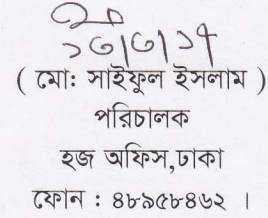 ১৩/৩/১৭
( মো: সাইফুল ইসলাম )
পরিচালক
হজ অফিস,ঢাকা
ফোন : ৪৮৯৫৮৪৬২ ।